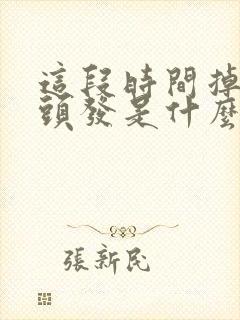 這段時間掉
頭發是什麼
張新民